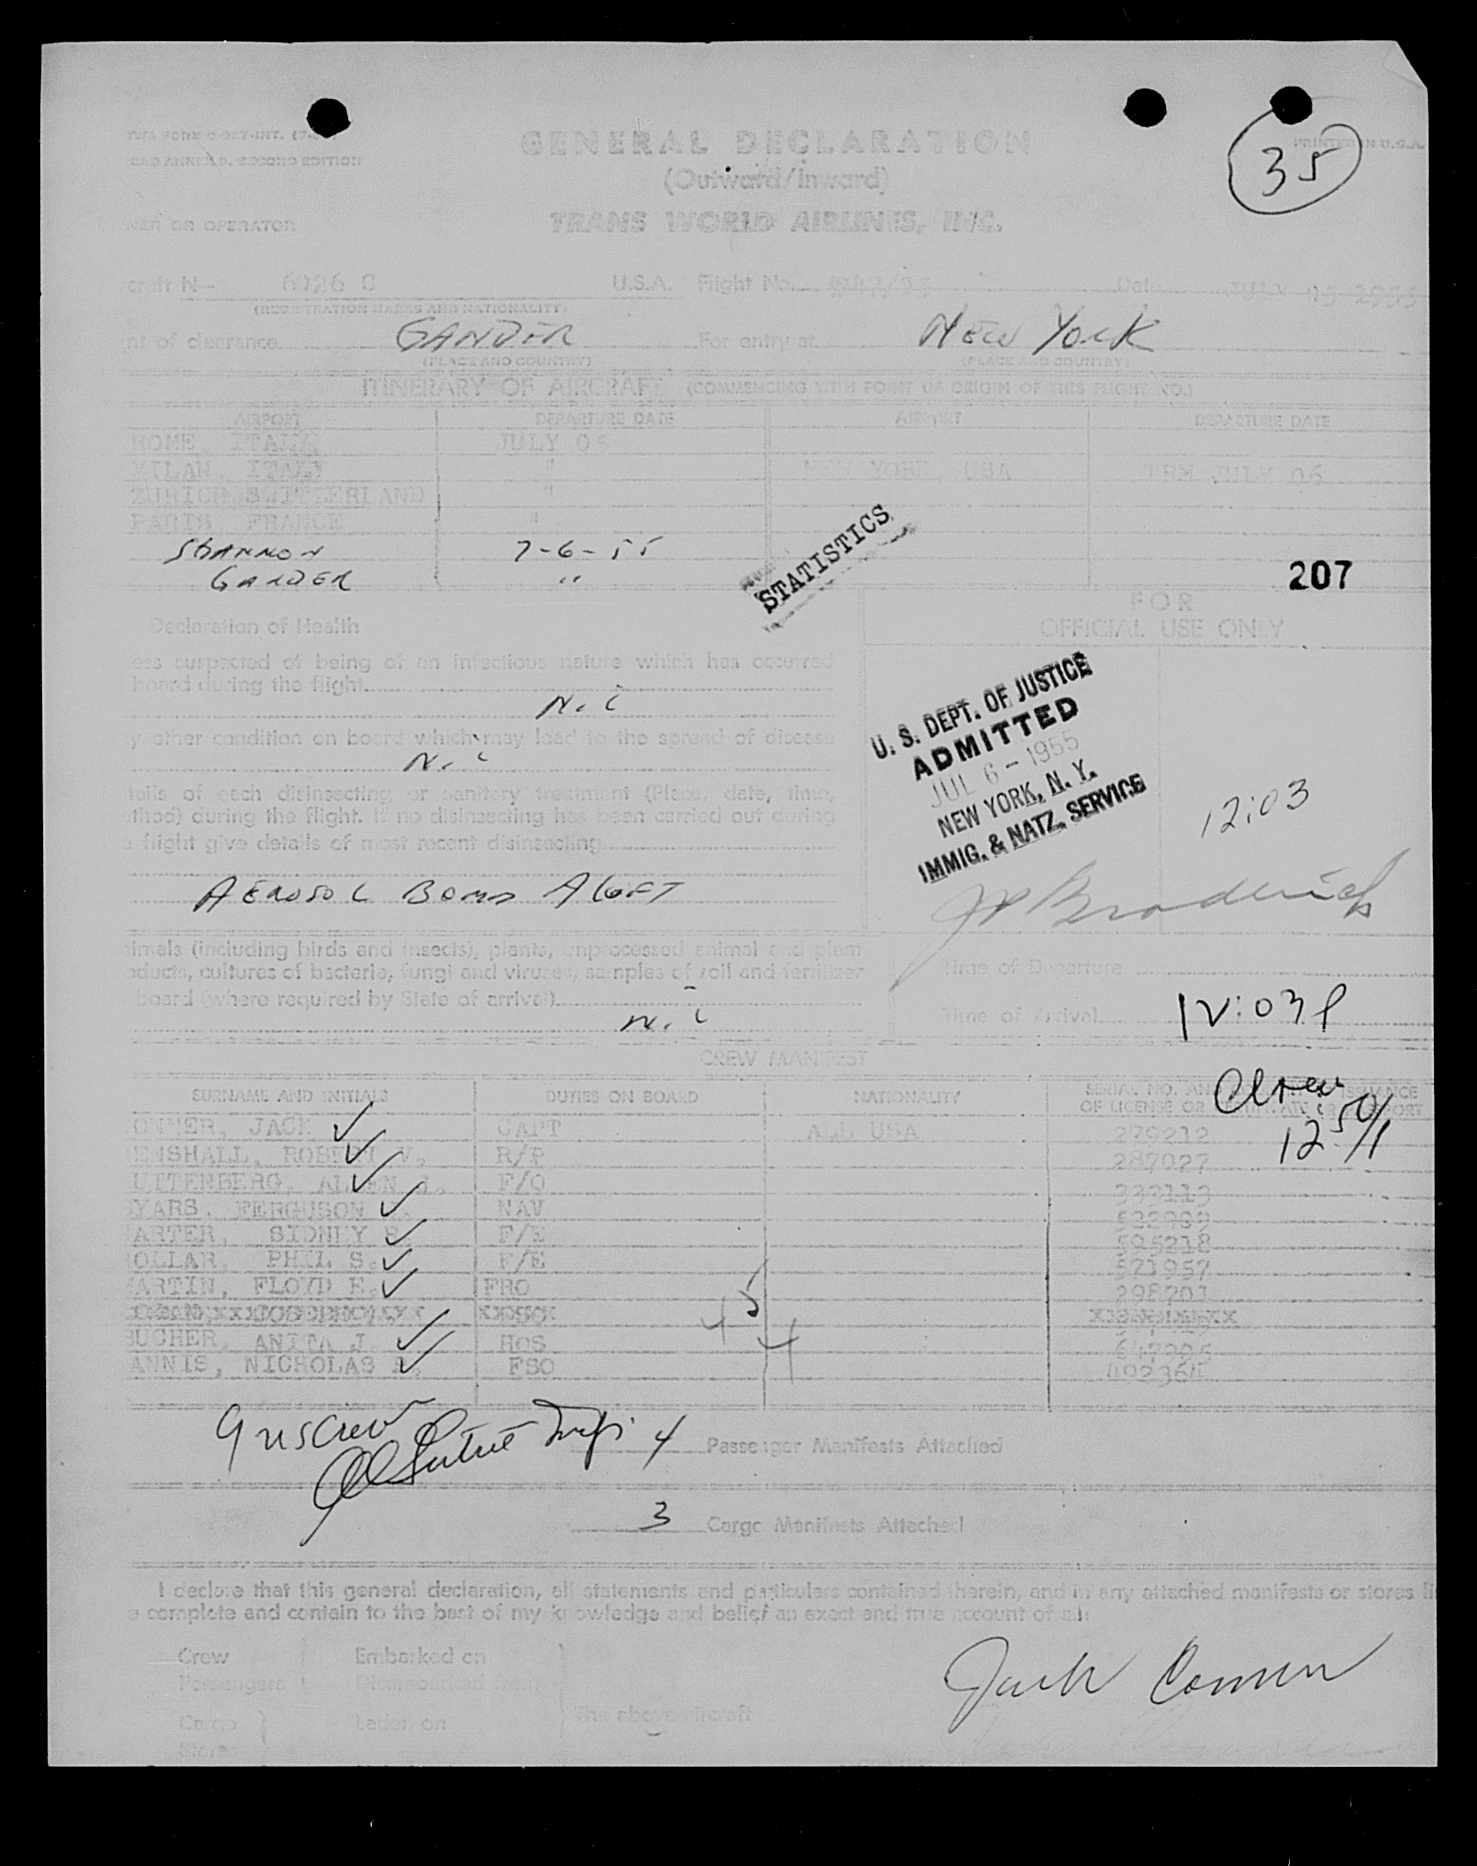 35
GENERAL DECLARATION
(Outward/Inward)
PRINTED IN U.S.A.
ANNEX 9, SECOND EDITION
NER OR OPERATOR
TRANS WORLD AIRLINES, INC.
craft N- 6026 C U.S.A. Flight No. Date JULY 05 1955
(REGISTRATION MARKS AND NATIONALITY)
nt of clearance GANDER For entry at NEW YORK
(PLACE AND COUNTRY) (PLACE AND COUNTRY)
ITINERARY OF AIRCRAFT (COMMENCING WITH POINT OF ORIGIN OF THIS FLIGHT NO.)
AIRPORT DEPARTURE DATE AIRPORT DEPARTURE DATE
ROME, ITALY JULY 05
MILAN, ITALY " NEW YORK, USA TRM JULY 06
ZURICH SWITZERLAND "
PARIS, FRANCE "
SHANNON 7-6-55
GANDER "
STATISTICS
207
FOR
OFFICIAL USE ONLY
Declaration of Health
ess suspected of being of an infectious nature which has occurred
board during the flight
N.i
y other condition on board which may lead to the spread of disease
N.i
tails of each disinsecting or sanitary treatment (Place, date, time,
thod) during the flight. If no disinsecting has been carried out during
e flight give details of most recent disinsecting
AEROSOL BOMB ALOFT
U. S. DEPT. OF JUSTICE
ADMITTED
JUL 6 - 1955
NEW YORK, N. Y.
IMMIG. & NATZ. SERVICE
12:03
Broderick
imals (including birds and insects), plants, unprocessed animal and plant
oducts, cultures of bacteria, fungi and viruses, samples of soil and fertilizer
board (where required by State of arrival)
N.i
Time of Departure
Time of Arrival 12:03P
CREW MANIFEST
SURNAME AND INITIALS DUTIES ON BOARD NATIONALITY SERIAL NO. AND ISSUANCE
OF LICENSE OR
12 50/
ONNER, JACK CAPT ALL USA 279212
ENSHALL, ROBERT V. R/P 287027
UITENBERG, ALLEN J. F/O 333113
YARS, FERGUSON NAV
ARTER, SIDNEY F/E 595218
OLLAR, PHIL S. F/E 571957
ARTIN, FLOYD E. FRO 298701
BUCHER, ANITA J. HOS
ANNIS, NICHOLAS FSO 492364
4 5
4
9 US Crew
4 Passenger Manifests Attached
3 Cargo Manifests Attached
I declare that this general declaration, all statements and particulars contained therein, and in any attached manifests or stores li
e complete and contain to the best of my knowledge and belief an exact and true account of all:
Crew Embarked on
Passengers Disembarked from
The above aircraft
Cargo Laden on
Stores
Jack Conner